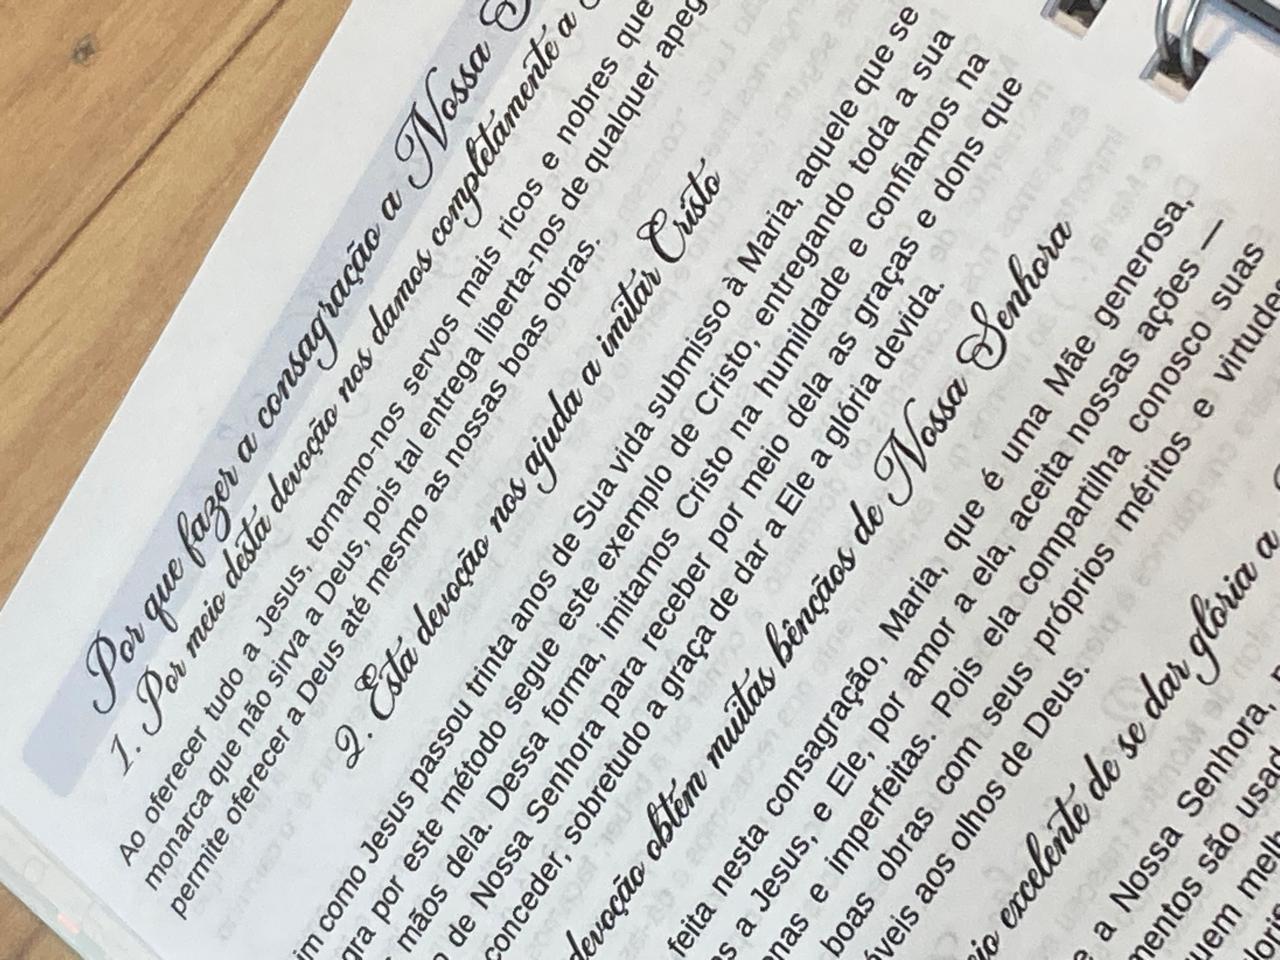 Por que fazer a consagração a Nossa
1. Por meio desta devoção nos damos completamente a
Ao oferecer tudo a Jesus, tornamo-nos servos mais ricos e nobres que
monarca que não sirva a Deus, pois tal entrega liberta-nos de qualquer
permite oferecer a Deus até mesmo as nossas boas obras.
2. Esta devoção nos ajuda a imitar Cristo
como Jesus passou trinta anos de Sua vida submisso à Maria, aquele que se
por este método segue este exemplo de Cristo, entregando toda a sua
mãos dela. Dessa forma, imitamos Cristo na humildade e confiamos na
de Nossa Senhora para receber por meio dela as graças e dons que
conceder, sobretudo a graça de dar a Ele a glória devida.
devoção obtém muitas bênçãos de Nossa Senhora
feita nesta consagração, Maria, que é uma Mãe generosa,
a Jesus, e Ele, por amor a ela, aceita nossas ações —
e imperfeitas. Pois ela compartilha conosco suas
boas obras com seus próprios méritos e
aos olhos de Deus.
excelente de se dar glória a
a Nossa Senhora,
são